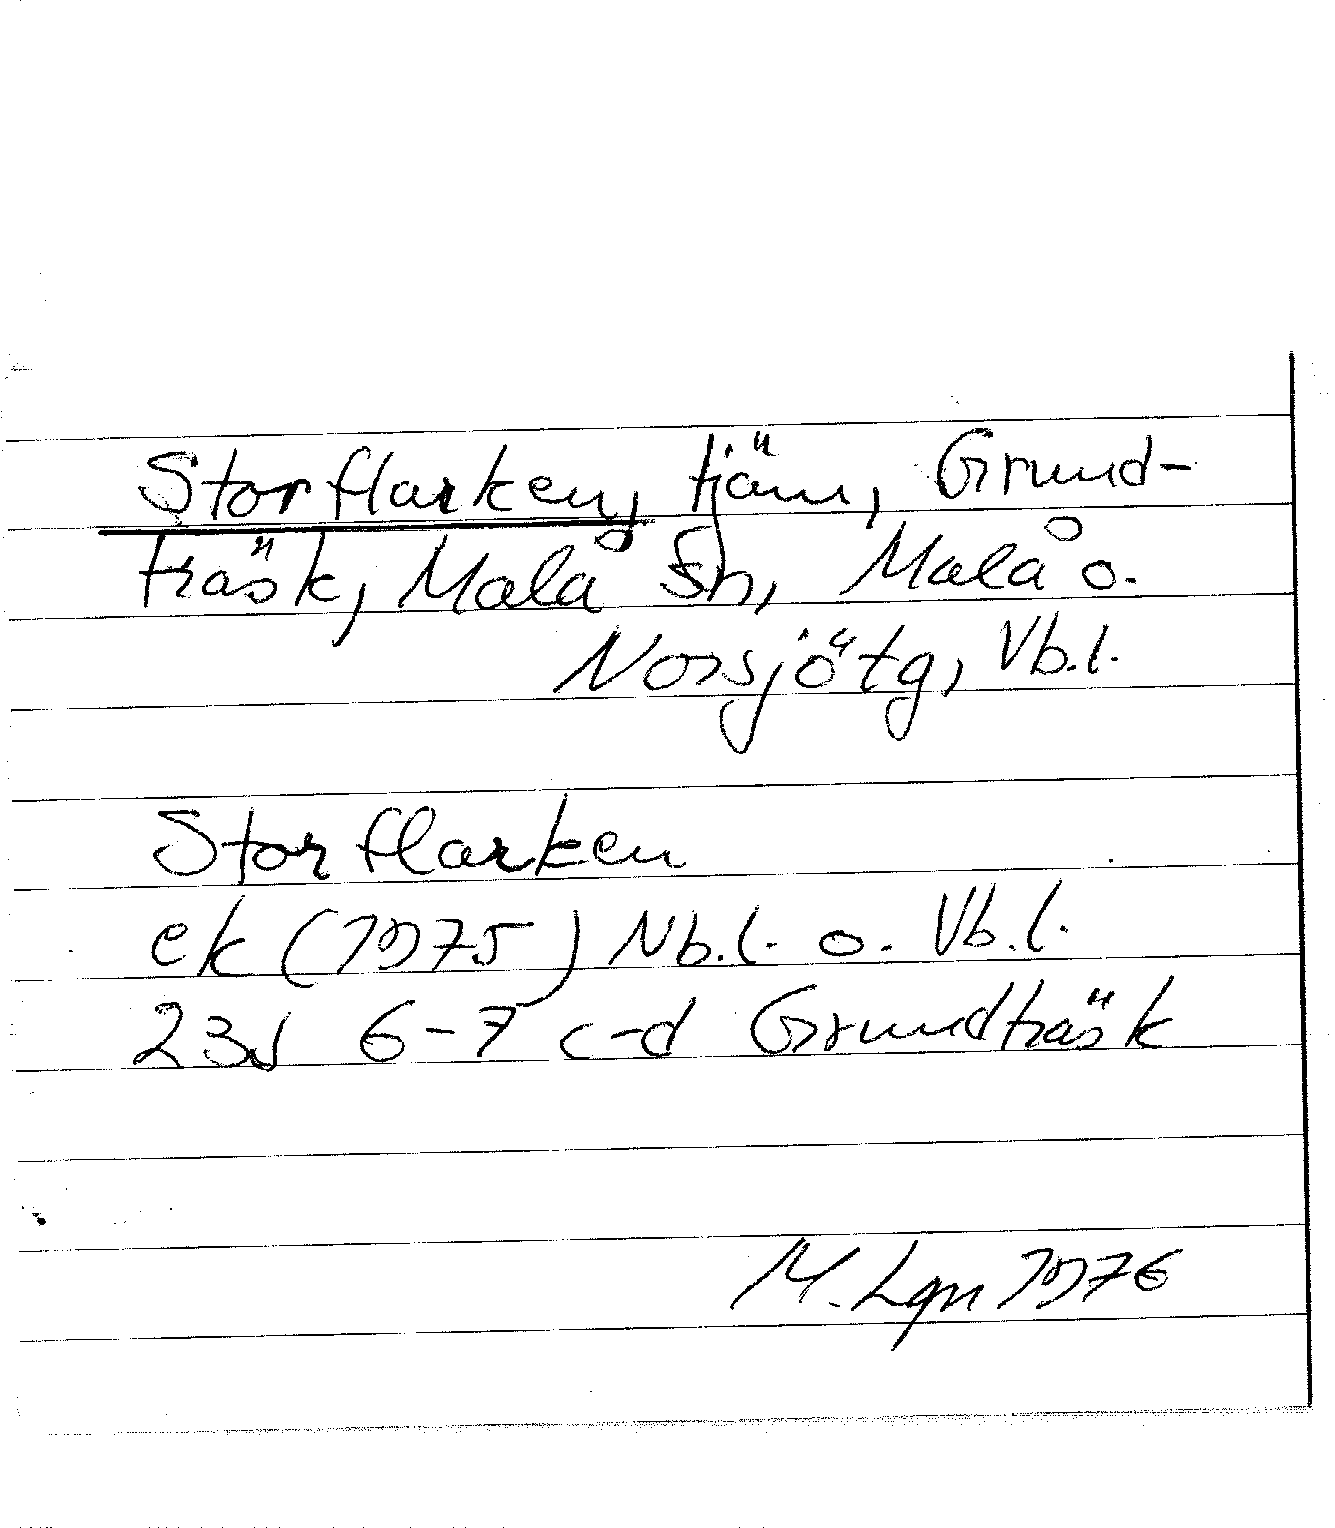 Storflarken, tjärn, Grund-
träsk, Malå sn, Malå o.
Norsjötg, Vb.l.
Storflarken
ek (1975) Nb.l. o. Vb.l.
23J 6-7 c-d Grundträsk
M. Lgn 1976